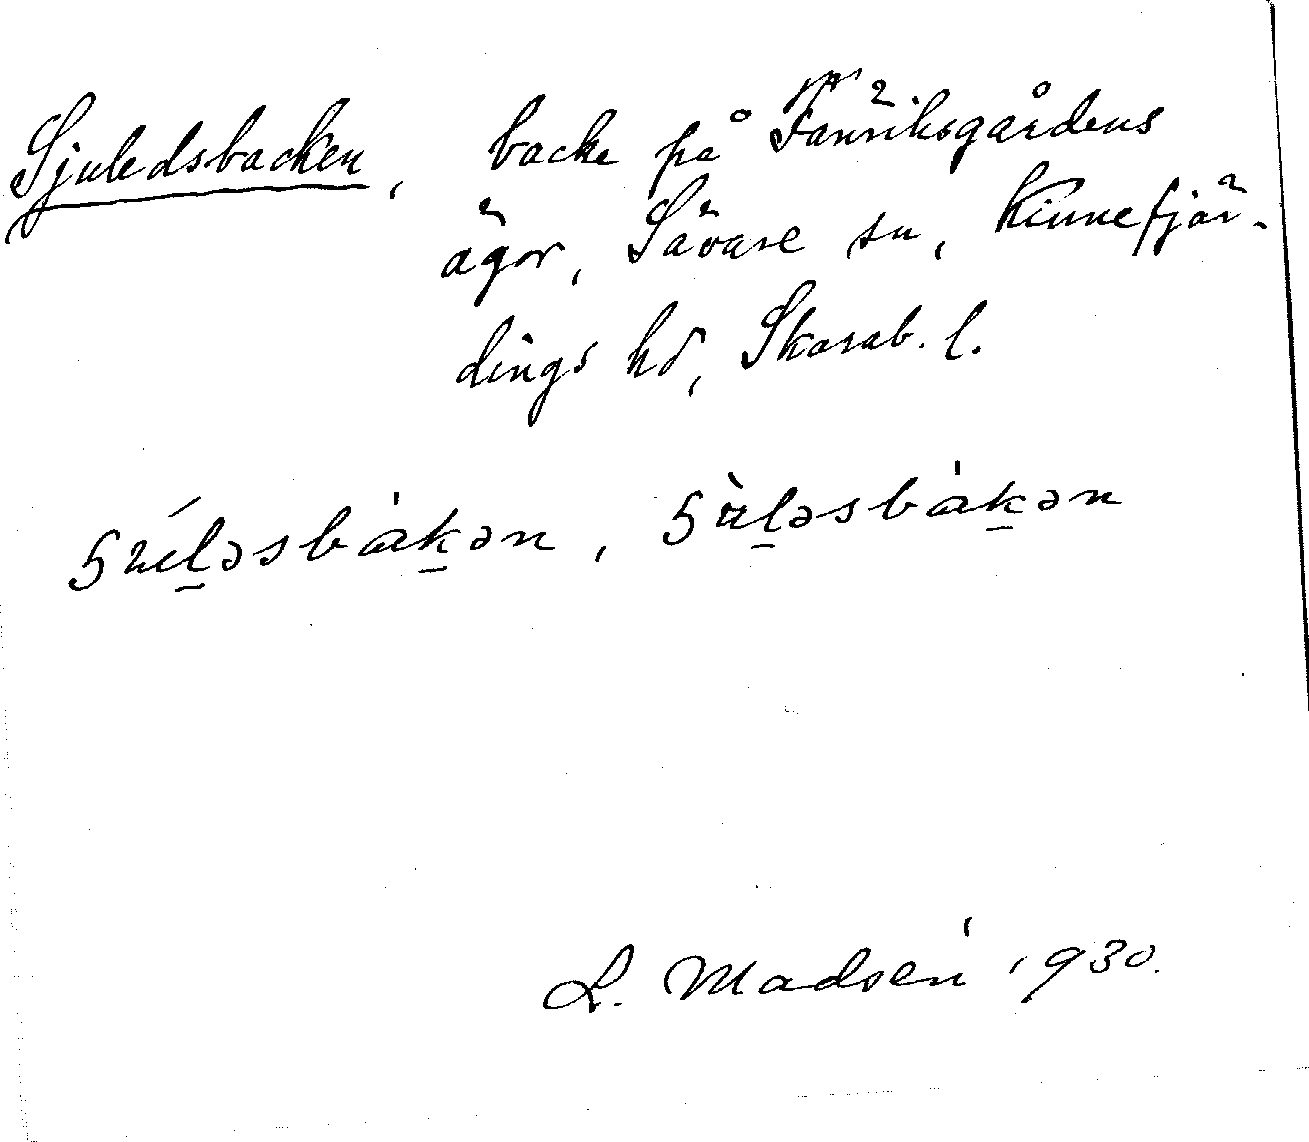 Sjuledsbacken, backe på Fänriksgårdens
ägor, Sävare sn, Kinnefjär-
dings hd, Skarab. l.
ʂúl̠əsbàk̠ən, ʂùl̠əsbàk̠ən
L. Madsén 1930.